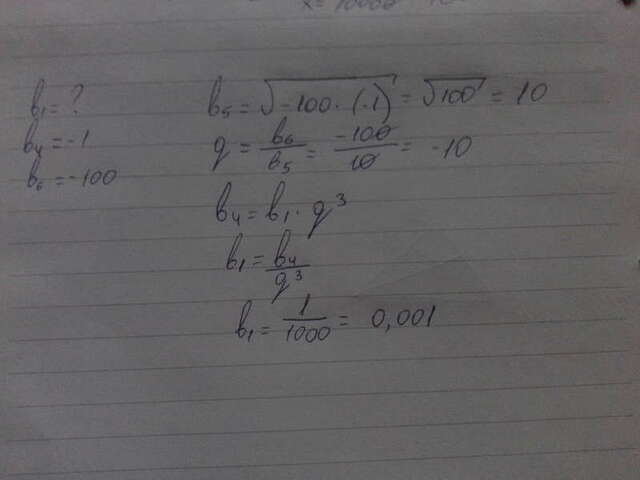 b₁ = ?
b₄ = -1
b₆ = -100
b₅ = √(-100 · (-1)) = √100 = 10
q = b₆/b₅ = -100/10 = -10
b₄ = b₁ · q³
b₁ = b₄/q³
b₁ = 1/1000 = 0,001